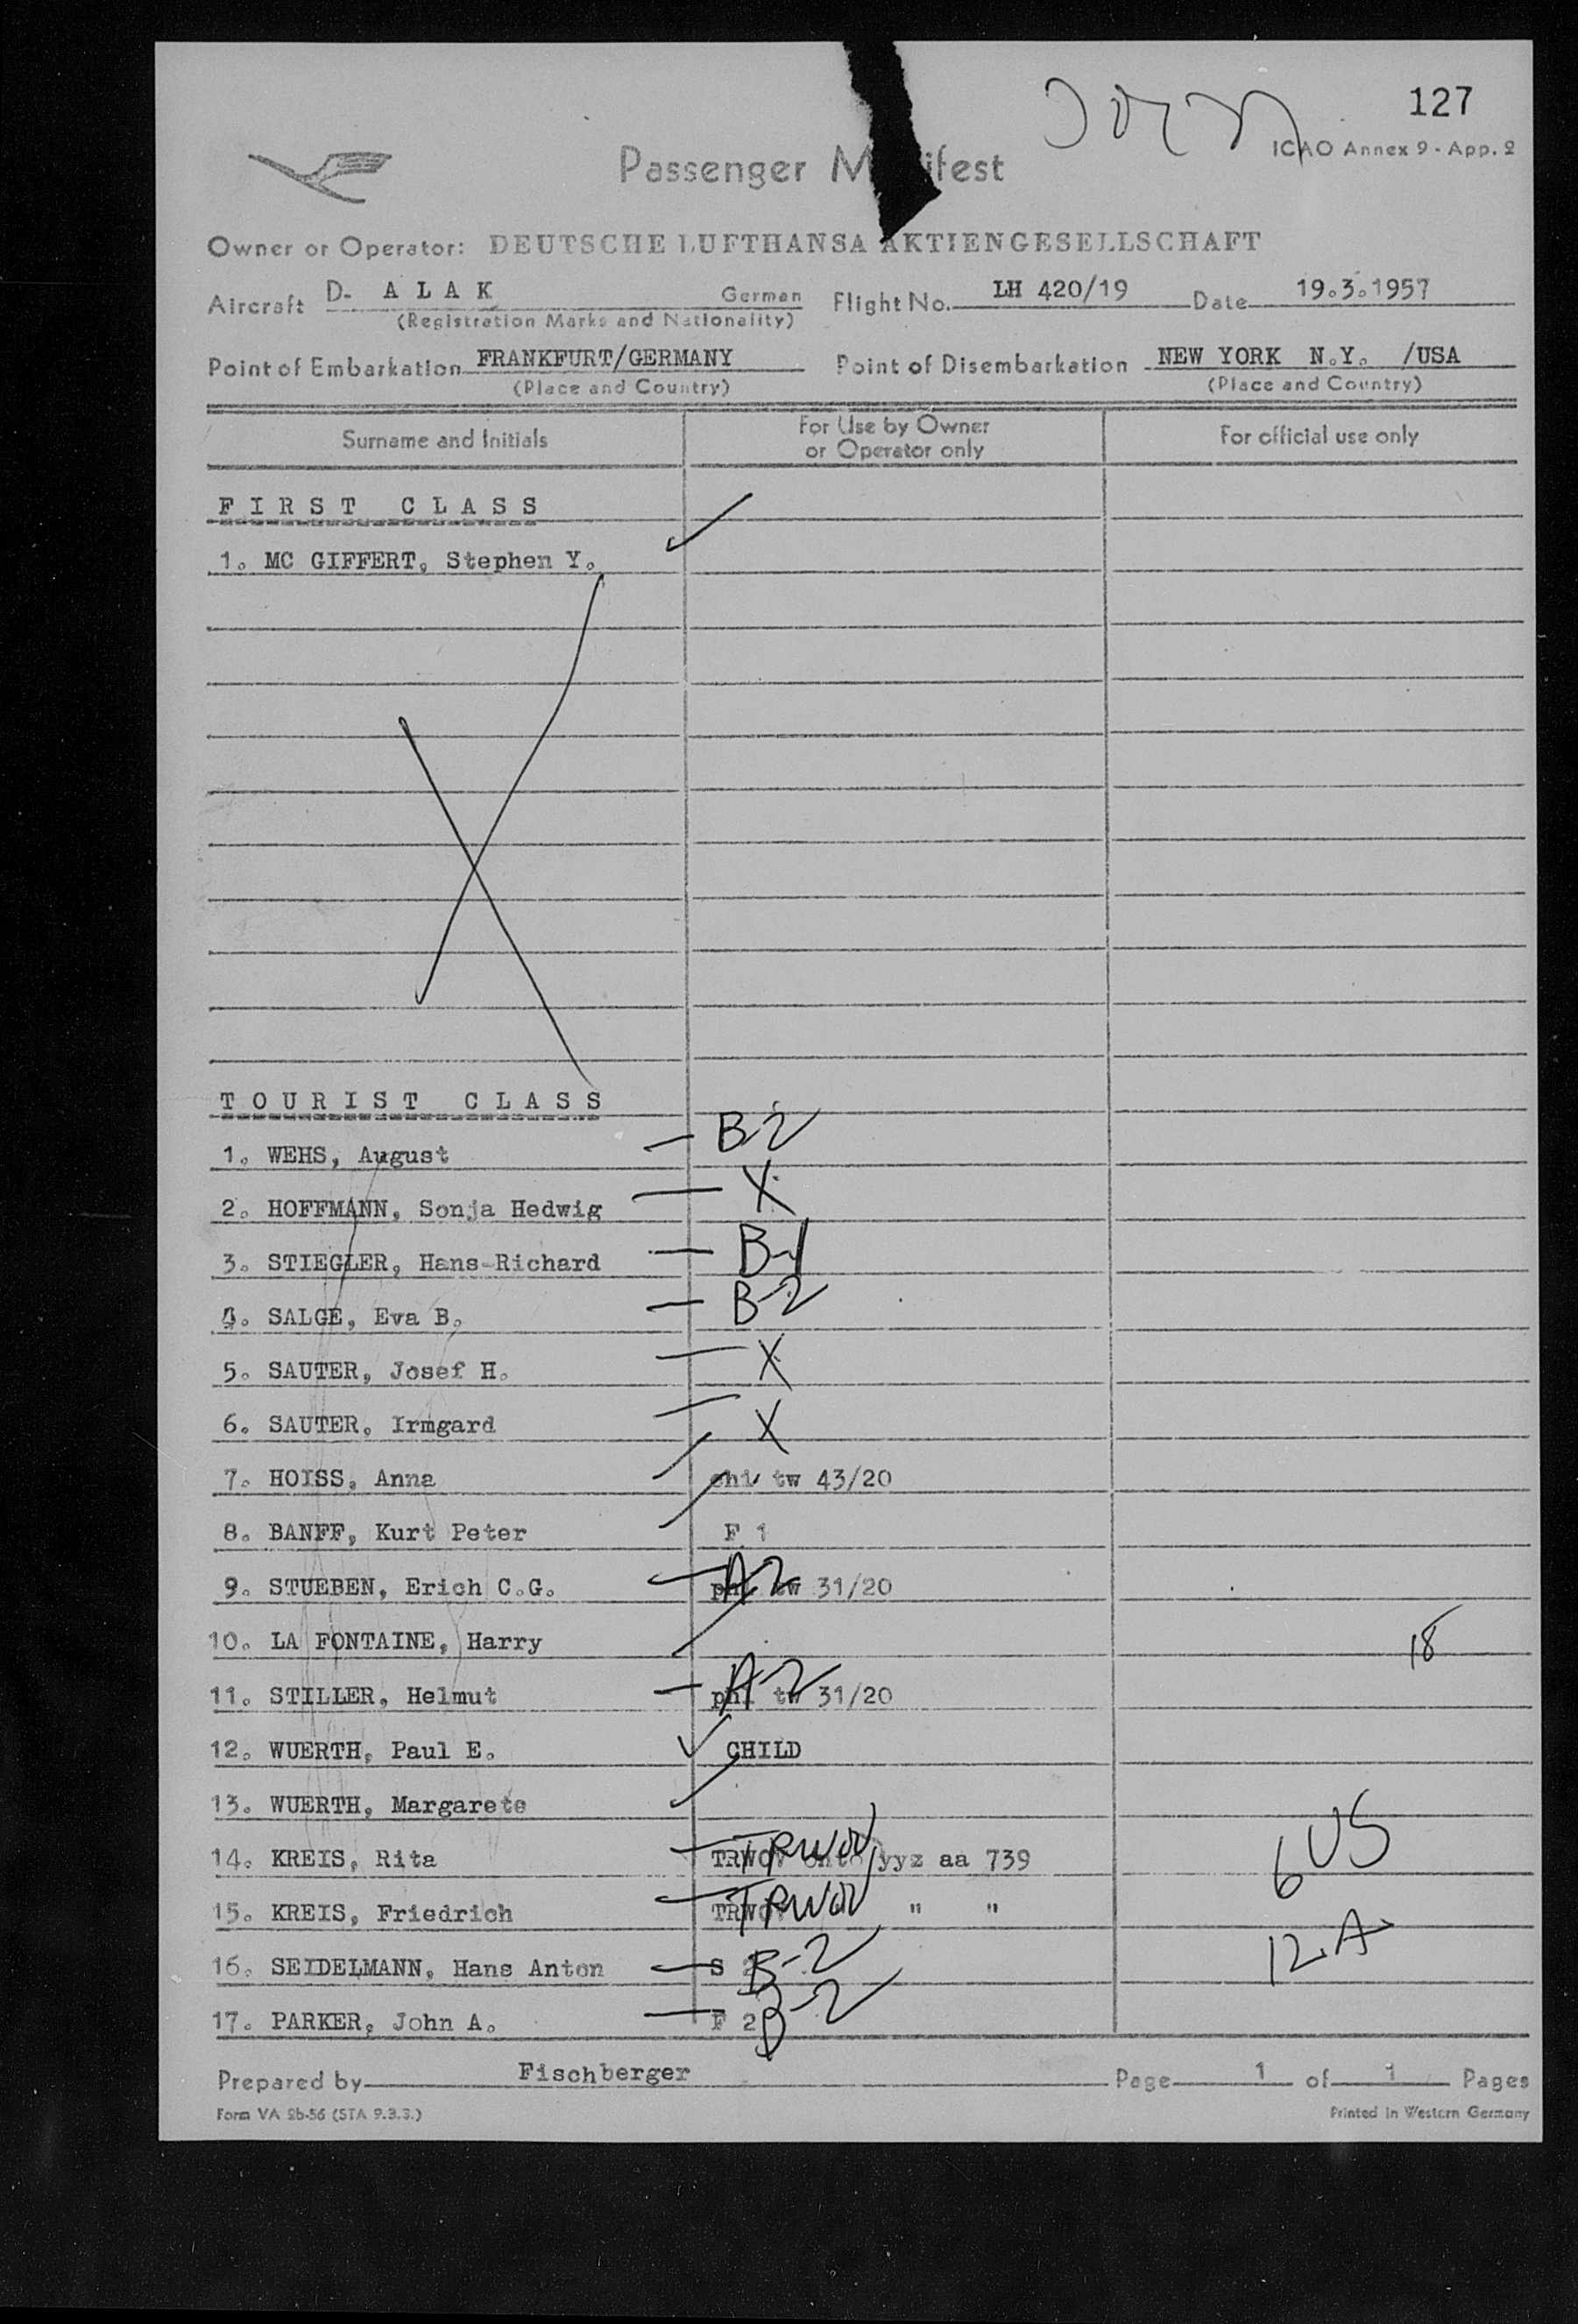 127
ICAO Annex 9 - App. 2
Passenger M ifest
Owner or Operator: DEUTSCHE LUFTHANSA AKTIENGESELLSCHAFT
Aircraft D- A L A K German Flight No. LH 420/19 Date 19.3.1957
(Registration Marks and Nationality)
Point of Embarkation FRANKFURT/GERMANY Point of Disembarkation NEW YORK N.Y. /USA
(Place and Country) (Place and Country)
Surname and Initials For Use by Owner or Operator only For official use only
F I R S T C L A S S
1. MC GIFFERT, Stephen Y.
T O U R I S T C L A S S
1. WEHS, August B-2
2. HOFFMANN, Sonja Hedwig X
3. STIEGLER, Hans-Richard B-1
4. SALGE, Eva B. B-2
5. SAUTER, Josef H. X
6. SAUTER, Irmgard X
7. HOISS, Anna chi tw 43/20
8. BANFF, Kurt Peter F 1
9. STUEBEN, Erich C.G. phl tw 31/20 A2
10. LA FONTAINE, Harry 18
11. STILLER, Helmut phl tw 31/20 A-2
12. WUERTH, Paul E. CHILD
13. WUERTH, Margarete
14. KREIS, Rita TRWOV onto yyz aa 739 TRWOV 6 US
15. KREIS, Friedrich TRWOV " " TRWOV
12 A
16. SEIDELMANN, Hans Anton S 2 B-2
17. PARKER, John A. F 2 B-2
Prepared by Fischberger Page 1 of 1 Pages
Form VA 2b-56 (STA 9.3.3.) Printed in Western Germany